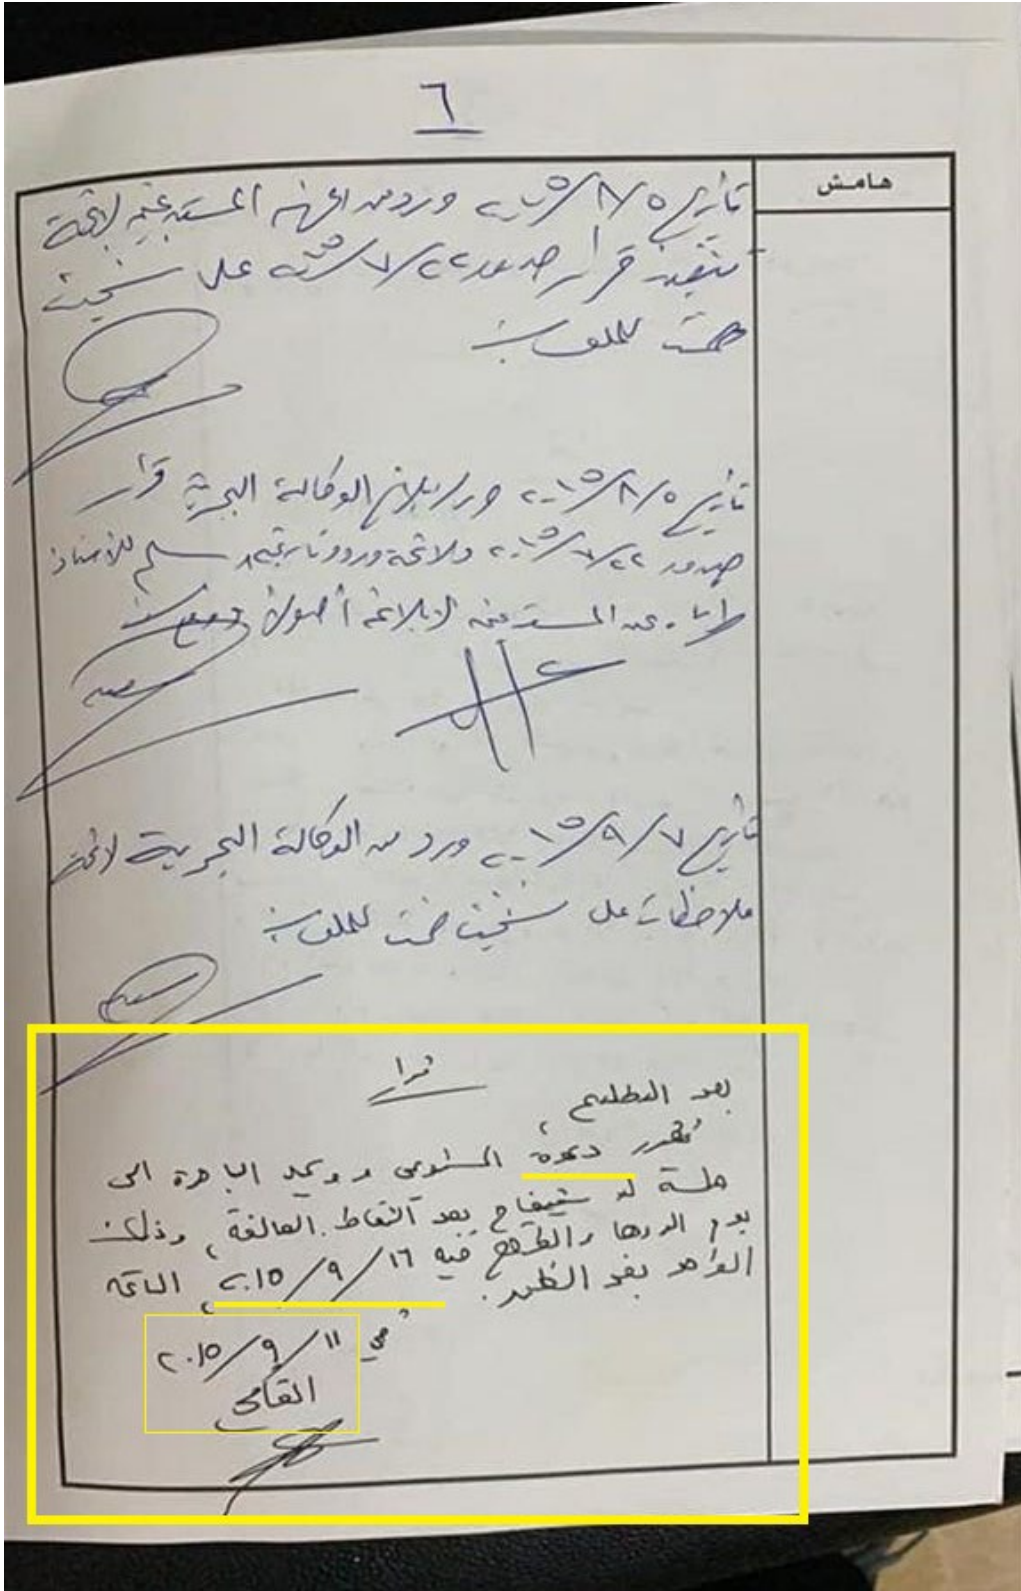 ٦
هامش
تاريخ ٢٠١٥/٨/٥ ورد من الجهة المستدعية لائحة
تنفيذ قرار صدر ٢٠١٥/٧/٢٢ على نسختين
ضمت للملف
تاريخ ٢٠١٥/٨/٥ جرى ابلاغ الوكالة البحرية قرار
صدر ٢٠١٥/٧/٢٢ ولائحة وردت سلم للأستاذ
عن المستدعية لابلاغه أصولا
تاريخ ٢٠١٥/٩/٧ ورد من الوكالة البحرية لائحة
ملاحظات على نسختين ضمت للملف
قرار
بعد التطليع،
نقرر دعوة المستدعي ووكيل الباخرة الى
جلسة لاستيضاح بعد النقاط العالقة، وذلك
يوم الاربعاء الواقع فيه ٢٠١٥/٩/١٦، الساعة
الواحدة بعد الظهر.
في ٢٠١٥/٩/١١
القاضي